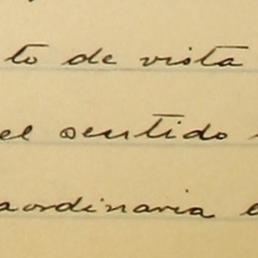 to de vista
el sentido
aordinaria e